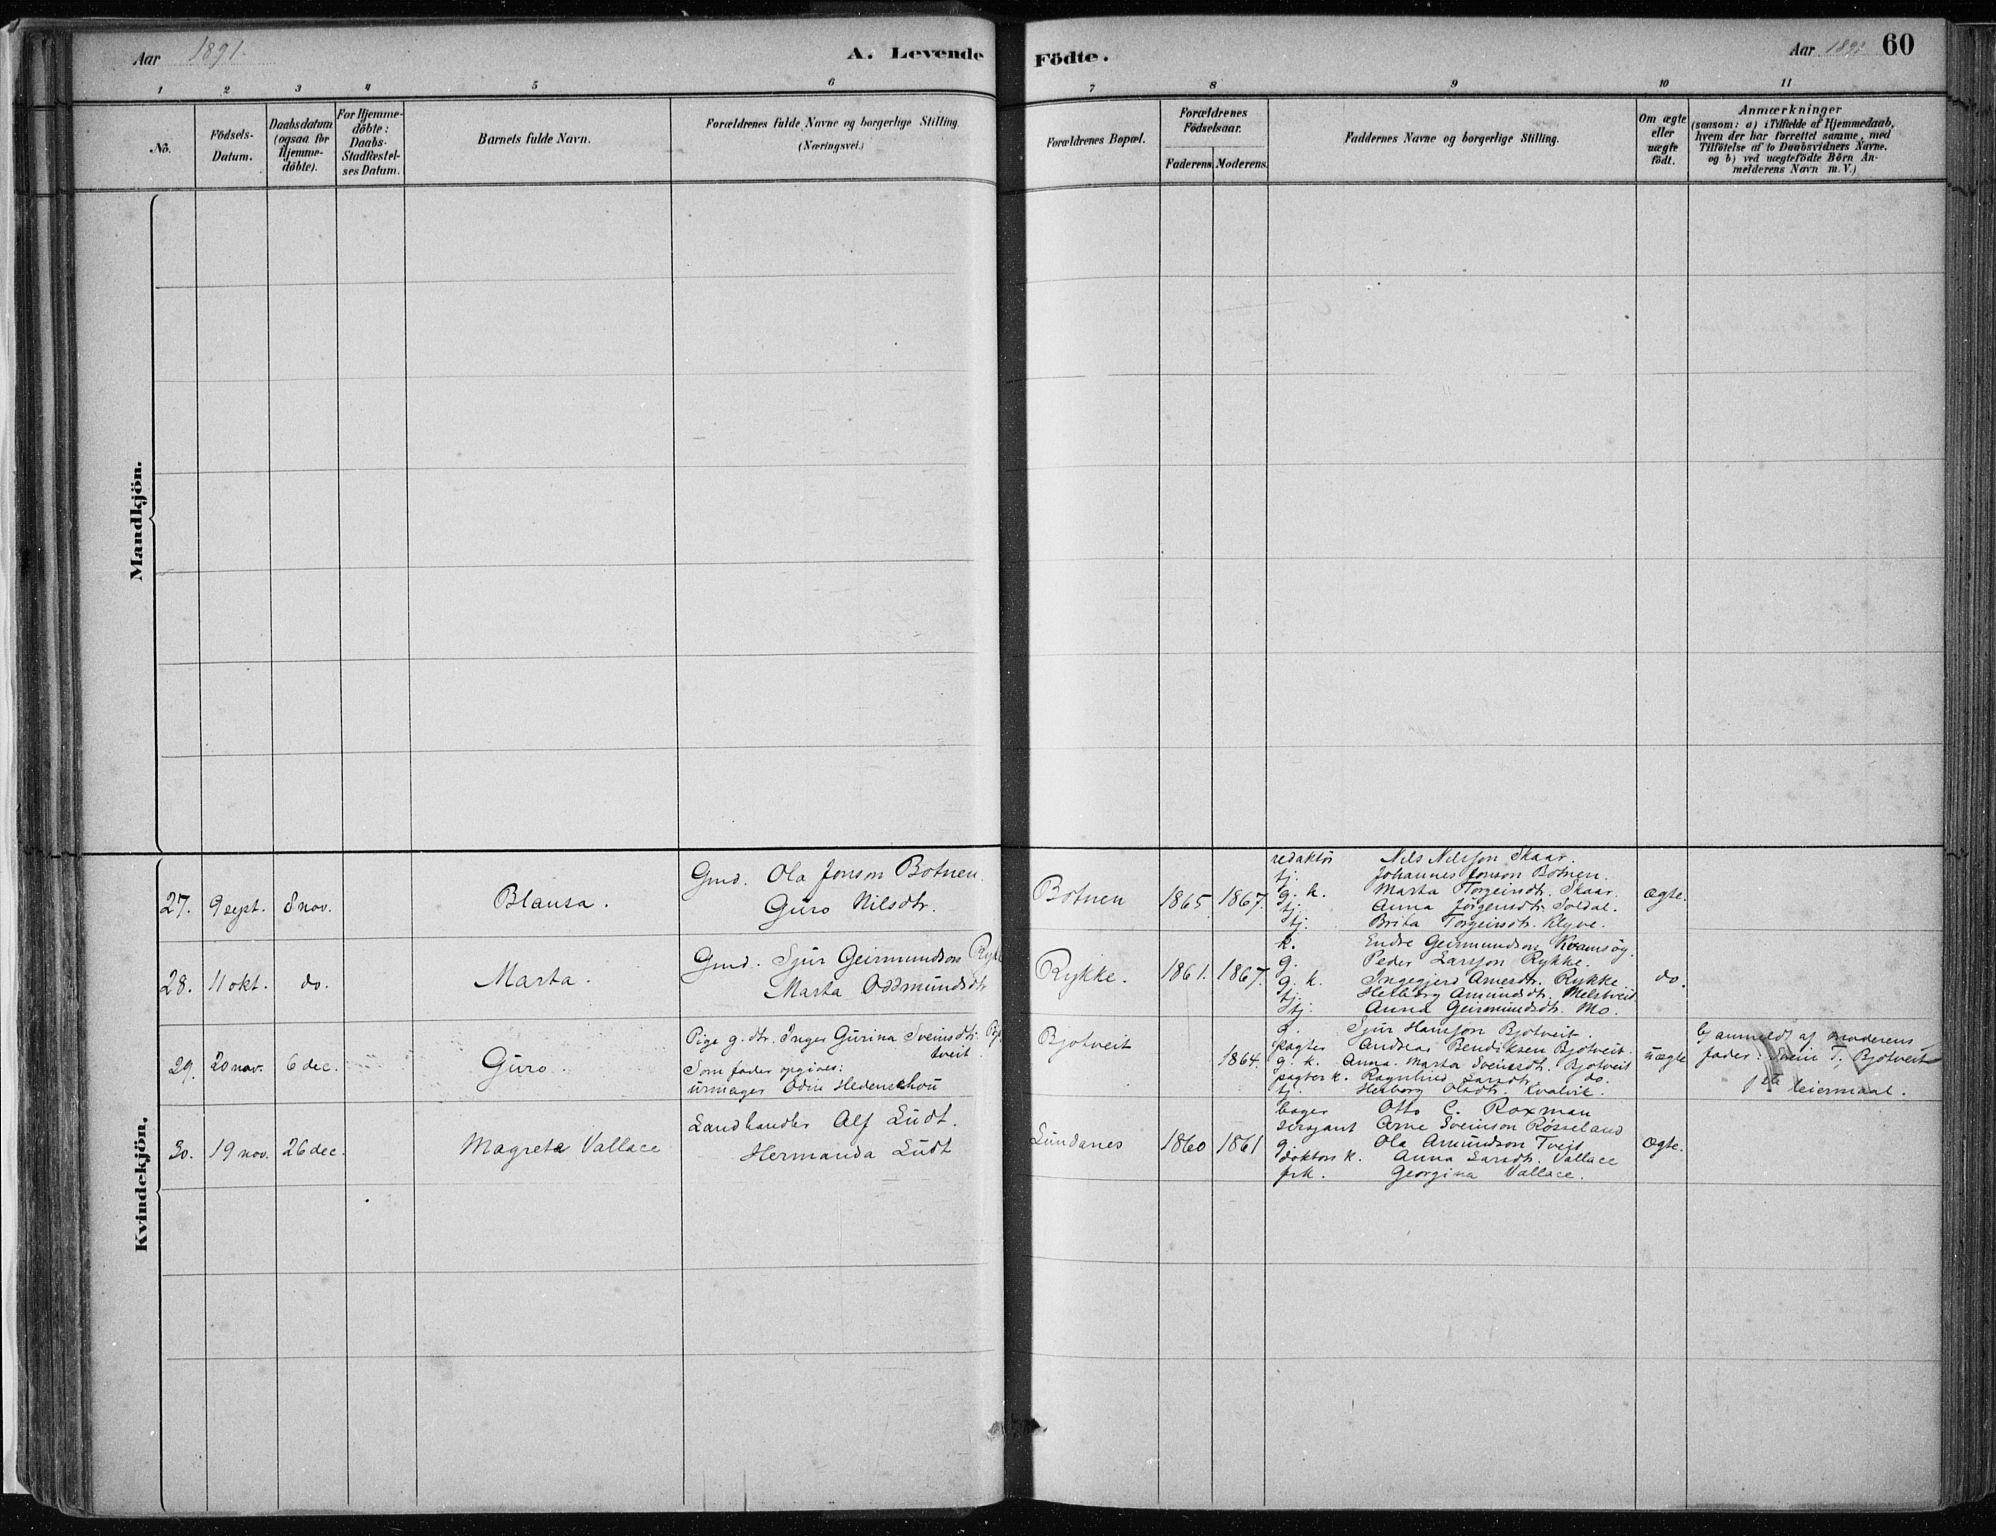 Aar 1891. A. Levende Födte. Aar 60
1 2 3 4 5 6 7 8 9 10 11
No.
Födsels-Datum.
Daabsdatum (ogsaa for Hjemme-döbte).
For Hjemme-döbte: Daabs-Stadfæstel-ses Datum.
Barnets fulde Navn.
Forældrenes fulde Navne og borgerlige Stilling.
(Næringsvei.)
Forældrenes Bopæl.
Forældrenes Födselsaar.
Faderens. Moderens.
Faddernes Navne og borgerlige Stilling.
Om ægte eller uægte födt.
Anmærkninger
(saasom: a) i Tilfælde af Hjemmedaab,
hvem der har forrettet samme, med
Tilföielse af to Daabsvidners Navne.
og b) ved uægtefödte Börn An-
melderens Navn m. V.)
Mandkjön.
Kvindekjön.
27. 9 sept. 8 nov. Blansa.
Gmd. Ola Jonson Botnen.
Guro Nilsdtr.
Botnen 1865. 1867.
redaktör Nils Nilsson Skaar.
tj. Johannes Jonson Botnen.
g. k. Marta Torgeirsdtr. Skaar.
tj. Anna Jörgensdtr. Soldal.
tj. Brita Torgeirsdtr. Klyve.
Ægte.
28. 11 okt. do. Marta.
Gmd. Sjur Geirmundson
Marta Oddmundsdtr
Rykke. 1861. 1867.
k. Endre Geirmundson Kvamsøg.
g. Peder Larsson Rykke.
g. k. Ingegjerd Arnesdtr. Rykke
tj. Herborg Amundsdtr. Melstveit
tj. Anna Geirmundsdtr. Mo.
do.
29. 20 nov. 6 dec. Guro.
Pige g. dtr. Inger Gurina Sveinsdtr.
tveit.
Som fader opgives:
urmager Odin Hedenschou
Bjotveit 1864.
Sjur Hansson Bjotveit.
pagter Andreas Bendiksen Bjotveit.
g. k. Anna Marta Sveinsdtr. Bjotveit
pagter k. Ragnhild Larsdtr. do.
tj. Herborg Olsdtr. Kvalvik.
Uægte
b) anmeldt af moderens
fader: Svein T. Bjotveit
1ste leiermaal.
30. 19 nov. 26 dec. Magreta Vallace
Landhandler Alf Lüdt.
Hermanda Lüdt
Lundanes 1860 1861
bager Otto C. Roxman
sersjant Arne Sveinson Røsseland
g. Ola Amundson Tveit
doktors k. Anna Larsdtr. Vallace
frk. Georgina Vallace.
Ægte.